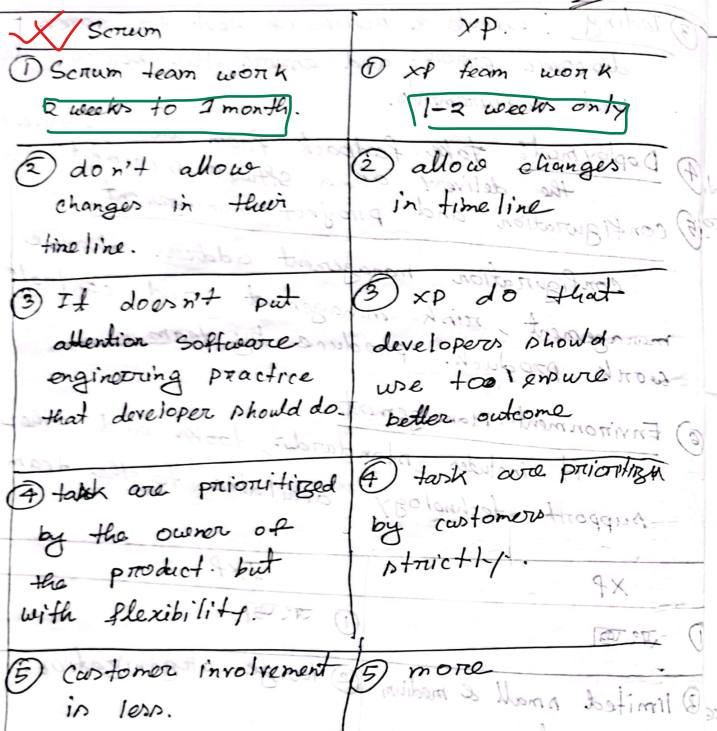 Scrum
XP.
① Scrum team work
2 weeks to 1 month.
① XP team work
1-2 weeks only
② don't allow
changes in their
timeline.
② allow changes
in timeline
③ It doesn't put
attention software
engineering practice
that developer should do.
③ XP do that
developers should
use to ensure
better outcome
④ task are prioritized
by the owner of
the product. but
with flexibility.
④ task are
by customers
strictly.
⑤ customer involvement
is less.
⑤ more
XP
limited small & medium